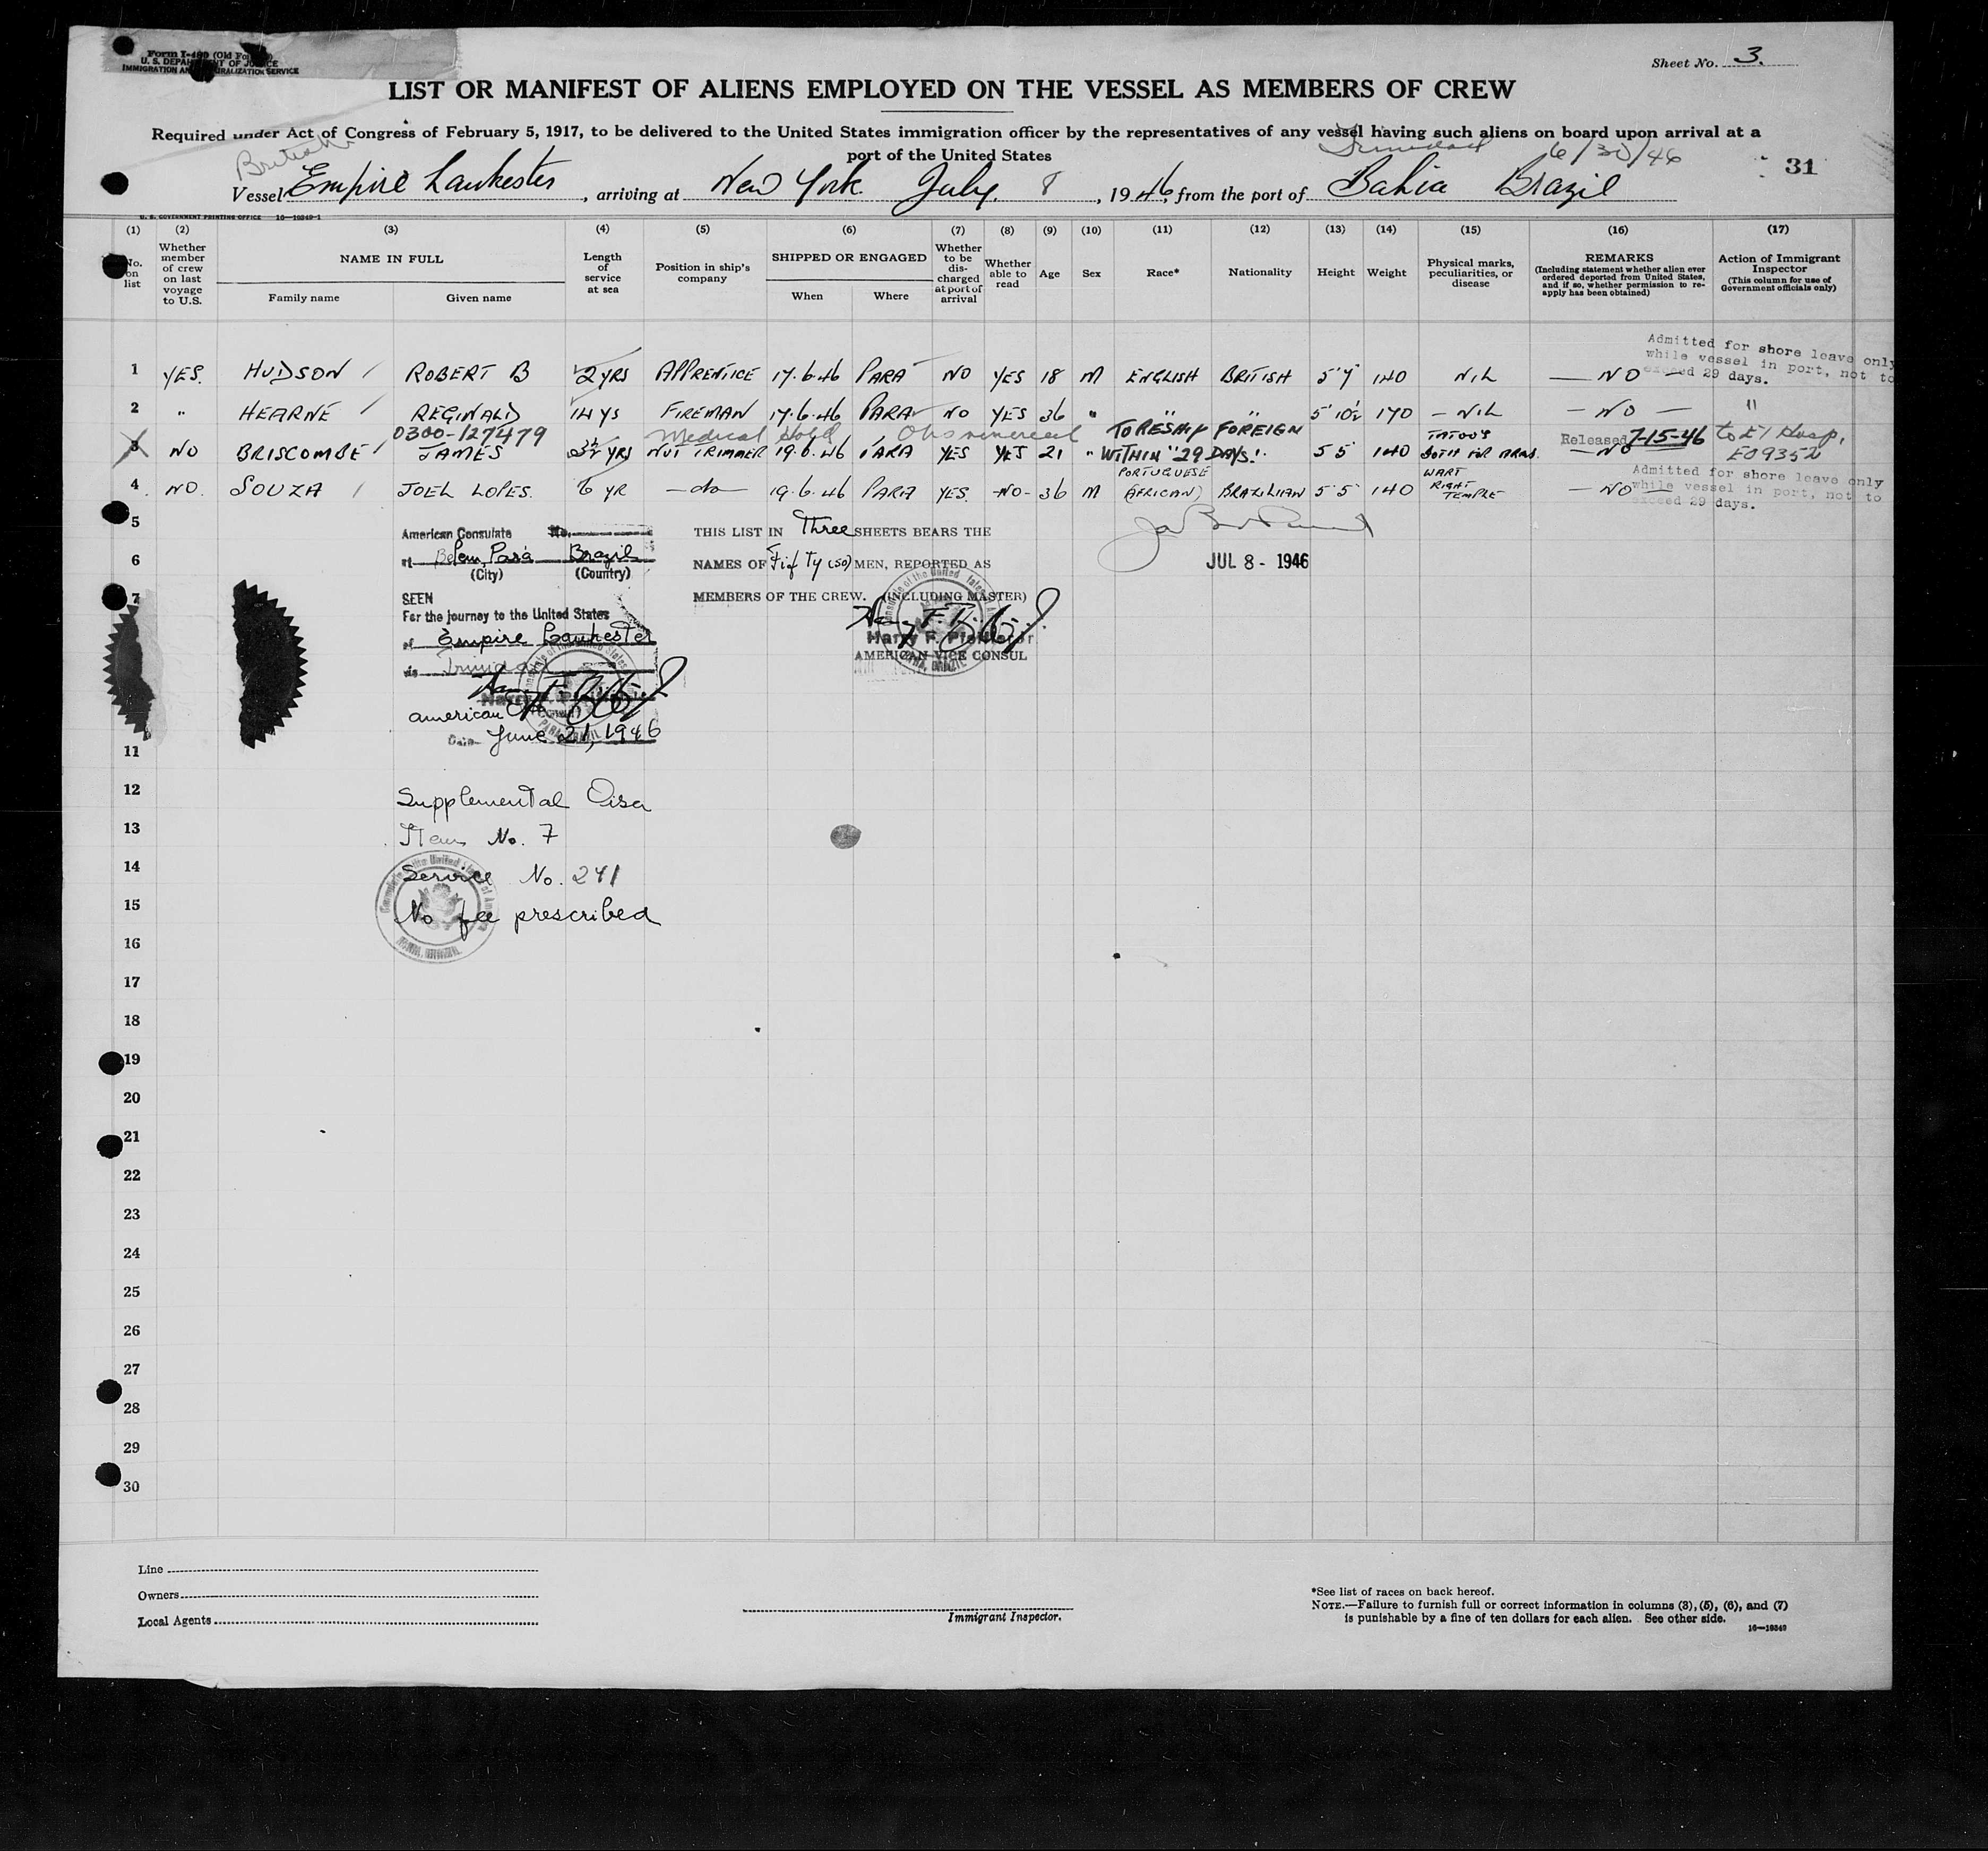 Form I-480 (Old Fo
U. S. DEPARTMENT OF JUSTICE
IMMIGRATION AND NATURALIZATION SERVICE
Sheet No. 3.
LIST OR MANIFEST OF ALIENS EMPLOYED ON THE VESSEL AS MEMBERS OF CREW
Required under Act of Congress of February 5, 1917, to be delivered to the United States immigration officer by the representatives of any vessel having such aliens on board upon arrival at a
port of the United States
British Trinidad 6/30/46
31
Vessel Empire Lankester, arriving at New York July. 8, 1946, from the port of Bahia Brazil
U. S. GOVERNMENT PRINTING OFFICE 16—19349-1
(1) (2) (3) (4) (5) (6) (7) (8) (9) (10) (11) (12) (13) (14) (15) (16) (17)
No. on list
Whether member of crew on last voyage to U.S.
NAME IN FULL
Family name Given name
Length of service at sea
Position in ship's company
SHIPPED OR ENGAGED
When Where
Whether to be discharged at port of arrival
Whether able to read
Age
Sex
Race*
Nationality
Height
Weight
Physical marks, peculiarities, or disease
REMARKS
(Including statement whether alien ever ordered deported from United States, and if so, whether permission to reapply has been obtained)
Action of Immigrant Inspector
(This column for use of Government officials only)
Admitted for shore leave only
while vessel in port, not to
exceed 29 days.
1 YES. HUDSON ROBERT B 2 YRS APPRENTICE 17.6.46 PARA NO YES 18 M ENGLISH BRITISH 5'7" 140 NIL — NO —
2 " HEARNE REGINALD 14 YS FIREMAN 17.6.46 PARA NO YES 36 " " " 5'10½ 170 — NIL — NO — "
0300-127479 Medical Hold TO RESHIP FOREIGN
Released 7-15-46 to EI Hosp.
3 NO BRISCOMBE JAMES 3½ YRS NUT TRIMMER 19.6.46 PARA YES YES 21 " WITHIN 29 DAYS. 5 5 140 TATOOS BOTH FOR ARMS. — NO E09352
4 NO. SOUZA JOEL LOPES. 6 YR — do — 19.6.46 PARA YES. -NO- 36 M PORTUGUESE (AFRICAN) BRAZILIAN 5'5" 140 WART RIGHT TEMPLE — NO —
Admitted for shore leave only
while vessel in port, not to
exceed 29 days.
5
American Consulate No.
THIS LIST IN Three SHEETS BEARS THE
6
at Belem, Pará Brazil
(City) (Country)
NAMES OF Fif Ty (50) MEN, REPORTED AS
JUL 8 - 1946
7
SEEN
MEMBERS OF THE CREW. (INCLUDING MASTER)
For the journey to the United States
of Empire Lankester
Harry F. Pfeiffer Jr.
AMERICAN VICE CONSUL
via Trinidad
American
Date June 21, 1946
11
12
Supplemental Visa
13
Item No. 7
14
Service No. 241
15
No fee prescribed
16
17
18
19
20
21
22
23
24
25
26
27
28
29
30
Line
Owners
Local Agents
Immigrant Inspector.
*See list of races on back hereof.
NOTE.—Failure to furnish full or correct information in columns (3), (5), (6), and (7)
is punishable by a fine of ten dollars for each alien. See other side.
16—19349